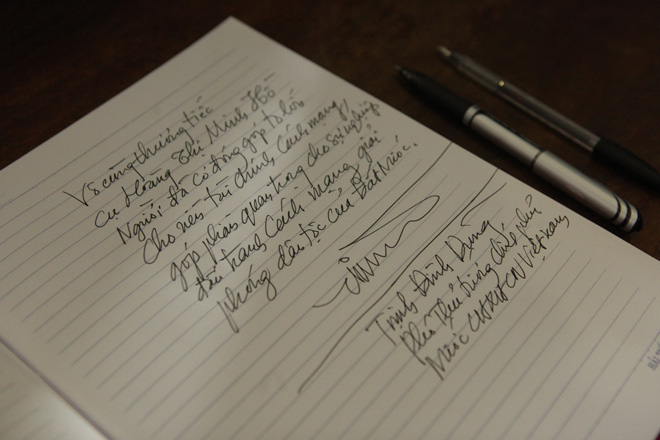 Vô cùng thương tiếc
cụ Hoàng Thị Minh Hồ
Người đã có đóng góp to lớn
cho nền tài chính cách mạng,
góp phần quan trọng cho sự nghiệp
đấu tranh cách mạng giải
phóng dân tộc của Đất Nước.
Trịnh Đình Dũng
Phó Thủ tướng chính phủ
Nước CHXHCN Việt Nam